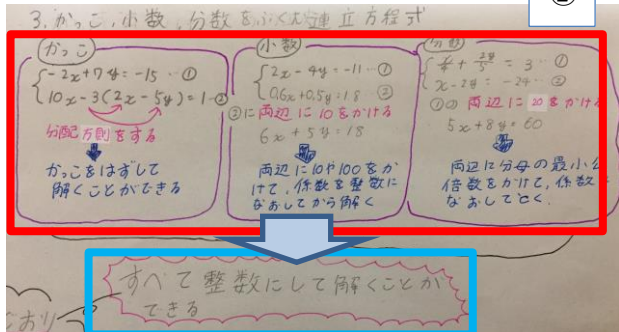 3. かっこ,小数,分数をふくむ連立方程式
②
かっこ
{-2x+7y=-15…①
10x-3(2x-5y)=1…②
分配方則をする
かっこをはずして
解くことができる
小数
{2x-4y=-11…①
0.6x+0.5y=1.8 ②
②に両辺に10をかける
6x+5y=18
両辺に10や100をか
けて,係数を整数に
なおしてから解く
分数
+2y/5=3…①
x-2y=-24…②
①の両辺に20をかける
5x+8y=60
両辺に分母の最小公
倍数をかけて,係数
なおしてとく.
すべて整数にして解くことが
できる